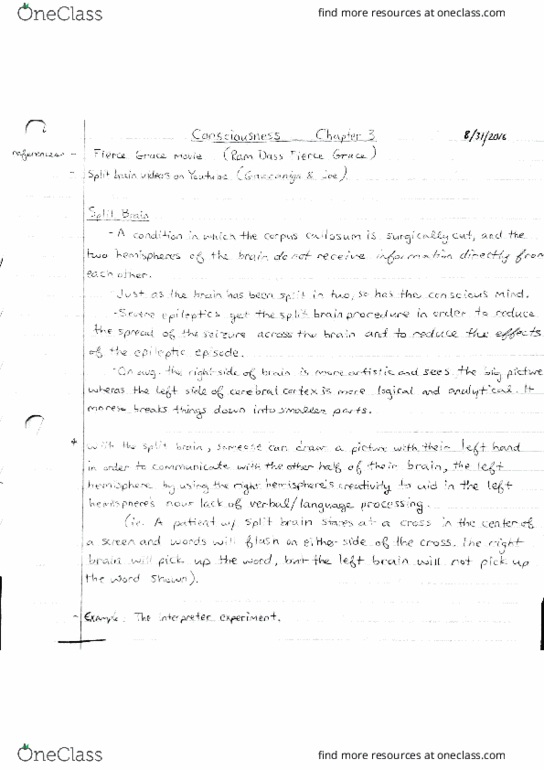 OneClass
find more resources at oneclass.com
Consciousness Chapter 3
8/31/2016
references - Fierce Grace movie (Ram Dass Fierce Grace)
- Split brain videos on Youtube (Gazzaniga & Joe)
Split Brain
- A condition in which the corpus callosum is surgically cut, and the
two hemispheres of the brain do not receive information directly from
each other.
- Just as the brain has been split in two, so has the conscious mind.
- Severe epileptics get the split brain procedure in order to reduce
the spread of the seizure across the brain and to reduce the effects
of the epileptic episode.
- On avg. the right side of brain is more artistic and sees the big picture
whereas the left side of cerebral cortex is more logical and analytical. It
more breaks things down into smaller parts.
+ With the split brain, someone can draw a picture with their left hand
in order to communicate with the other half of their brain, the left
hemisphere by using the right hemisphere's creativity to aid in the left
hemisphere's lack of verbal/language processing.
(ie. A patient w/ split brain stares at a cross in the center of
a screen and words will flash on either side of the cross. The right
brain will pick up the word, but the left brain will not pick up
the word shown).
- Example: The interpreter experiment.
OneClass
find more resources at oneclass.com